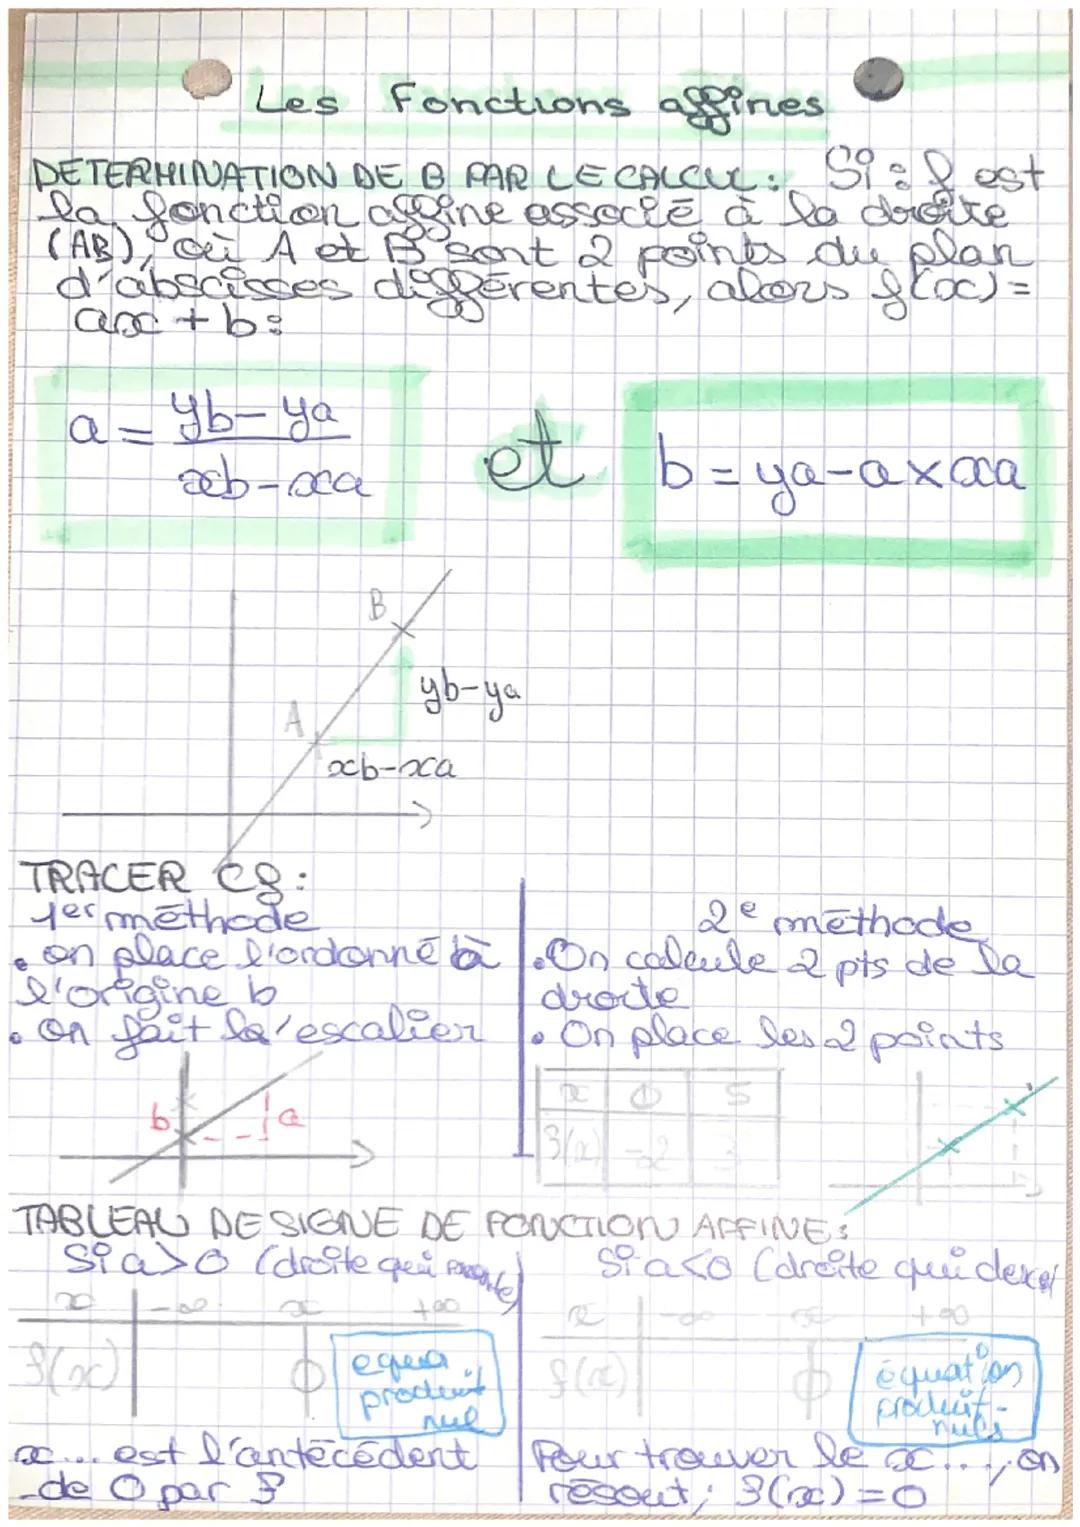 Les Fonctions affines
DETERMINATION DE B PAR LE CALCUL : Si : f est
la fonction affine associé à la droite
(AB), où A et B sont 2 points du plan
d'abscisses différentes, alors f(x) =
ax + b :
a = yb - ya / xb - xa et b = ya - a × xa
B
yb - ya
A
xb - xa
TRACER Cf :
1er méthode
• on place l'ordonné à
l'origine b
• on fait la l'escalier
b a
2e méthode
• On calcule 2 pts de la
droite
• On place les 2 points
x 0 5
f(x) -2 3
TABLEAU DE SIGNE DE FONCTION AFFINE :
Si a>0 (droite qui monte)
x -∞ x +∞
f(x) 0
equa
produit
nul
x... est l'antécédent
de 0 par f
Si a<0 (droite qui descen
x -∞ x +∞
f(x) 0
équation
produit-
nuls
Pour trouver le x..., on
résout ; f(x) = 0